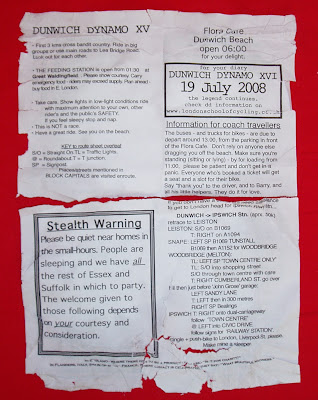 DUNWICH DYNAMO XV
- First 3 kms cross bandit country. Ride in big
groups or use main roads to Lea Bridge Road.
Look out for each other.
- THE FEEDING STATION is open from 01:30 at
Great Waldingfield. Please show courtesy. Carry
emergency food - riders may exceed supply. Plan ahead -
buy food in E. London.
- Take care. Show lights in low-light conditions ride
with maximum attention to your own, other
rider's and the public's SAFETY.
If you feel sleepy stop and nap.
- This is NOT a race.
- Have a great ride. See you on the beach.
KEY to route sheet overleaf
S/O = Straight On TL = Traffic Lights.
@ = Roundabout T = T junction.
SP = Signpost
Places/streets mentioned in
BLOCK CAPITALS are visited en route.
Flora Cafe
Dunwich Beach
open 06:00
for your delight.
for your diary
DUNWICH DYNAMO XVI
19 July 2008
the legend continues,
check dd information on
www.londonschoolofcycling.co.uk
Information for coach travellers
The buses - and trucks for bikes - are due to
depart around 13.00, from the parking in front
of the Flora Cafe. Don't rely on anyone else
dragging you off the beach. Make sure you're
standing (sitting or lying) - by for loading from
11:00, please be patient and don't get in a
panic. Everyone who's booked a ticket will get
a seat and a slot for their bike.
Say "thank you" to the driver, and to Barry, and
all his little helpers. They do it for love.
Stealth Warning
Please be quiet near homes in
the small-hours. People are
sleeping and we have all
the rest of Essex and
Suffolk in which to party.
The welcome given to
those following depends
on your courtesy and
consideration.
to get to London head for
DUNWICH -> IPSWICH Stn.
retrace to LEISTON
LEISTON: S/O on B1069
T: RIGHT on A1094
SNAPE: LEFT SP B1069 TUNSTALL
B1069 then A1152 to WOODBRIDGE
WOODBRIDGE (MELTON):
TL: LEFT SP 'TOWN CENTRE' ONLY
TL: S/O into shopping street
S/O through town centre with care
T: RIGHT CUMBERLAND ST. go over
then just before 'John Grose' garage.
LEFT SANDY LANE
T: LEFT then in 300 metres
RIGHT SP Bealings
IPSWICH T: RIGHT onto dual-carriageway
follow 'TOWN CENTRE'
@ LEFT into CIVIC DRIVE
follow signs for 'RAILWAY STATION'.
Single + push-bike to London, Liverpool St. please.
Make mine a sleeper